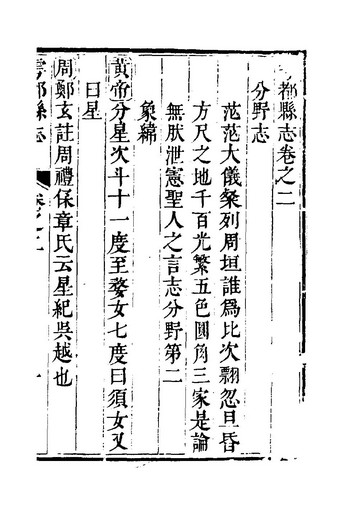 都縣志卷之二
分野志
茫茫大儀粲列周垣誰爲比次翾忽旦昏
方尺之地千百光繁五色圓角三家是論
無朕泄憲聖人之言志分野第二
象緯
黄帝分星次斗十一度至婺女七度曰須女又
曰星
周鄭玄註周禮保章氏云星紀吳越也
雩都縣志
卷之二
一